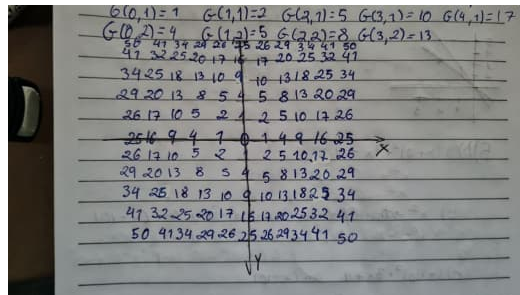 G(0,1)=1 G(1,1)=2 G(2,1)=5 G(3,1)=10 G(4,1)=17
G(0,2)=4 G(1,2)=5 G(2,2)=8 G(3,2)=13
50 41 34 29 26 25 26 29 34 41 50
41 32 25 20 17 16 17 20 25 32 41
34 25 18 13 10 9 10 13 18 25 34
29 20 13 8 5 4 5 8 13 20 29
26 17 10 5 2 1 2 5 10 17 26
25 16 9 4 1 0 1 4 9 16 25
X
26 17 10 5 2 2 5 10 17 26
29 20 13 8 5 4 5 8 13 20 29
34 25 18 13 10 9 10 13 18 25 34
41 32 25 20 17 16 17 20 25 32 41
50 41 34 29 26 25 26 29 34 41 50
Y